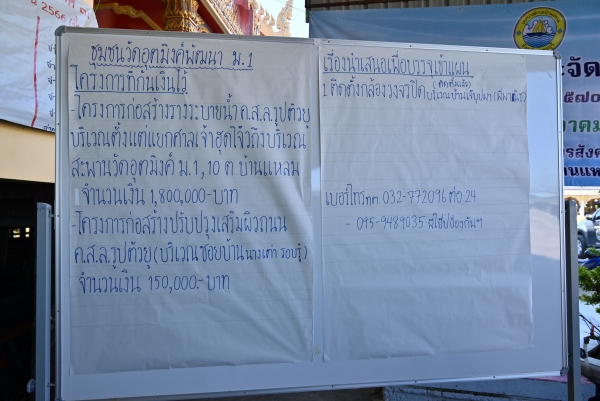 ชุมชนวัดอุตมิงค์พัฒนา ม.1
โครงการที่กันเงินไว้
-โครงการก่อสร้างรางระบายน้ำ ค.ส.ล.รูปตัวยู
บริเวณตั้งแต่แยกศาลเจ้าฮุดโจ้วถึงบริเวณ
สะพานวัดอุตมิงค์ ม.1,10 ต บ้านแหลม
จำนวนเงิน 1,800,000-บาท
-โครงการก่อสร้างปรับปรุงเสริมผิวถนน
ค.ส.ล.รูปตัวยู (บริเวณซอยบ้าน
จำนวนเงิน 150,000.- บาท
เรื่องนำเสนอเพื่อบรรจุเข้าแผน
(ติดตั้งแล้ว)
1.ติดตั้งกล้องวงจรปิดบริเวณบ้าน
เบอร์โทรกด 032-772096 ต่อ 24
- 095-9489035 มีใช้ป้องกันฯ
2566
ะจัด
๕๗๐
าคม
ารสังค
านแห